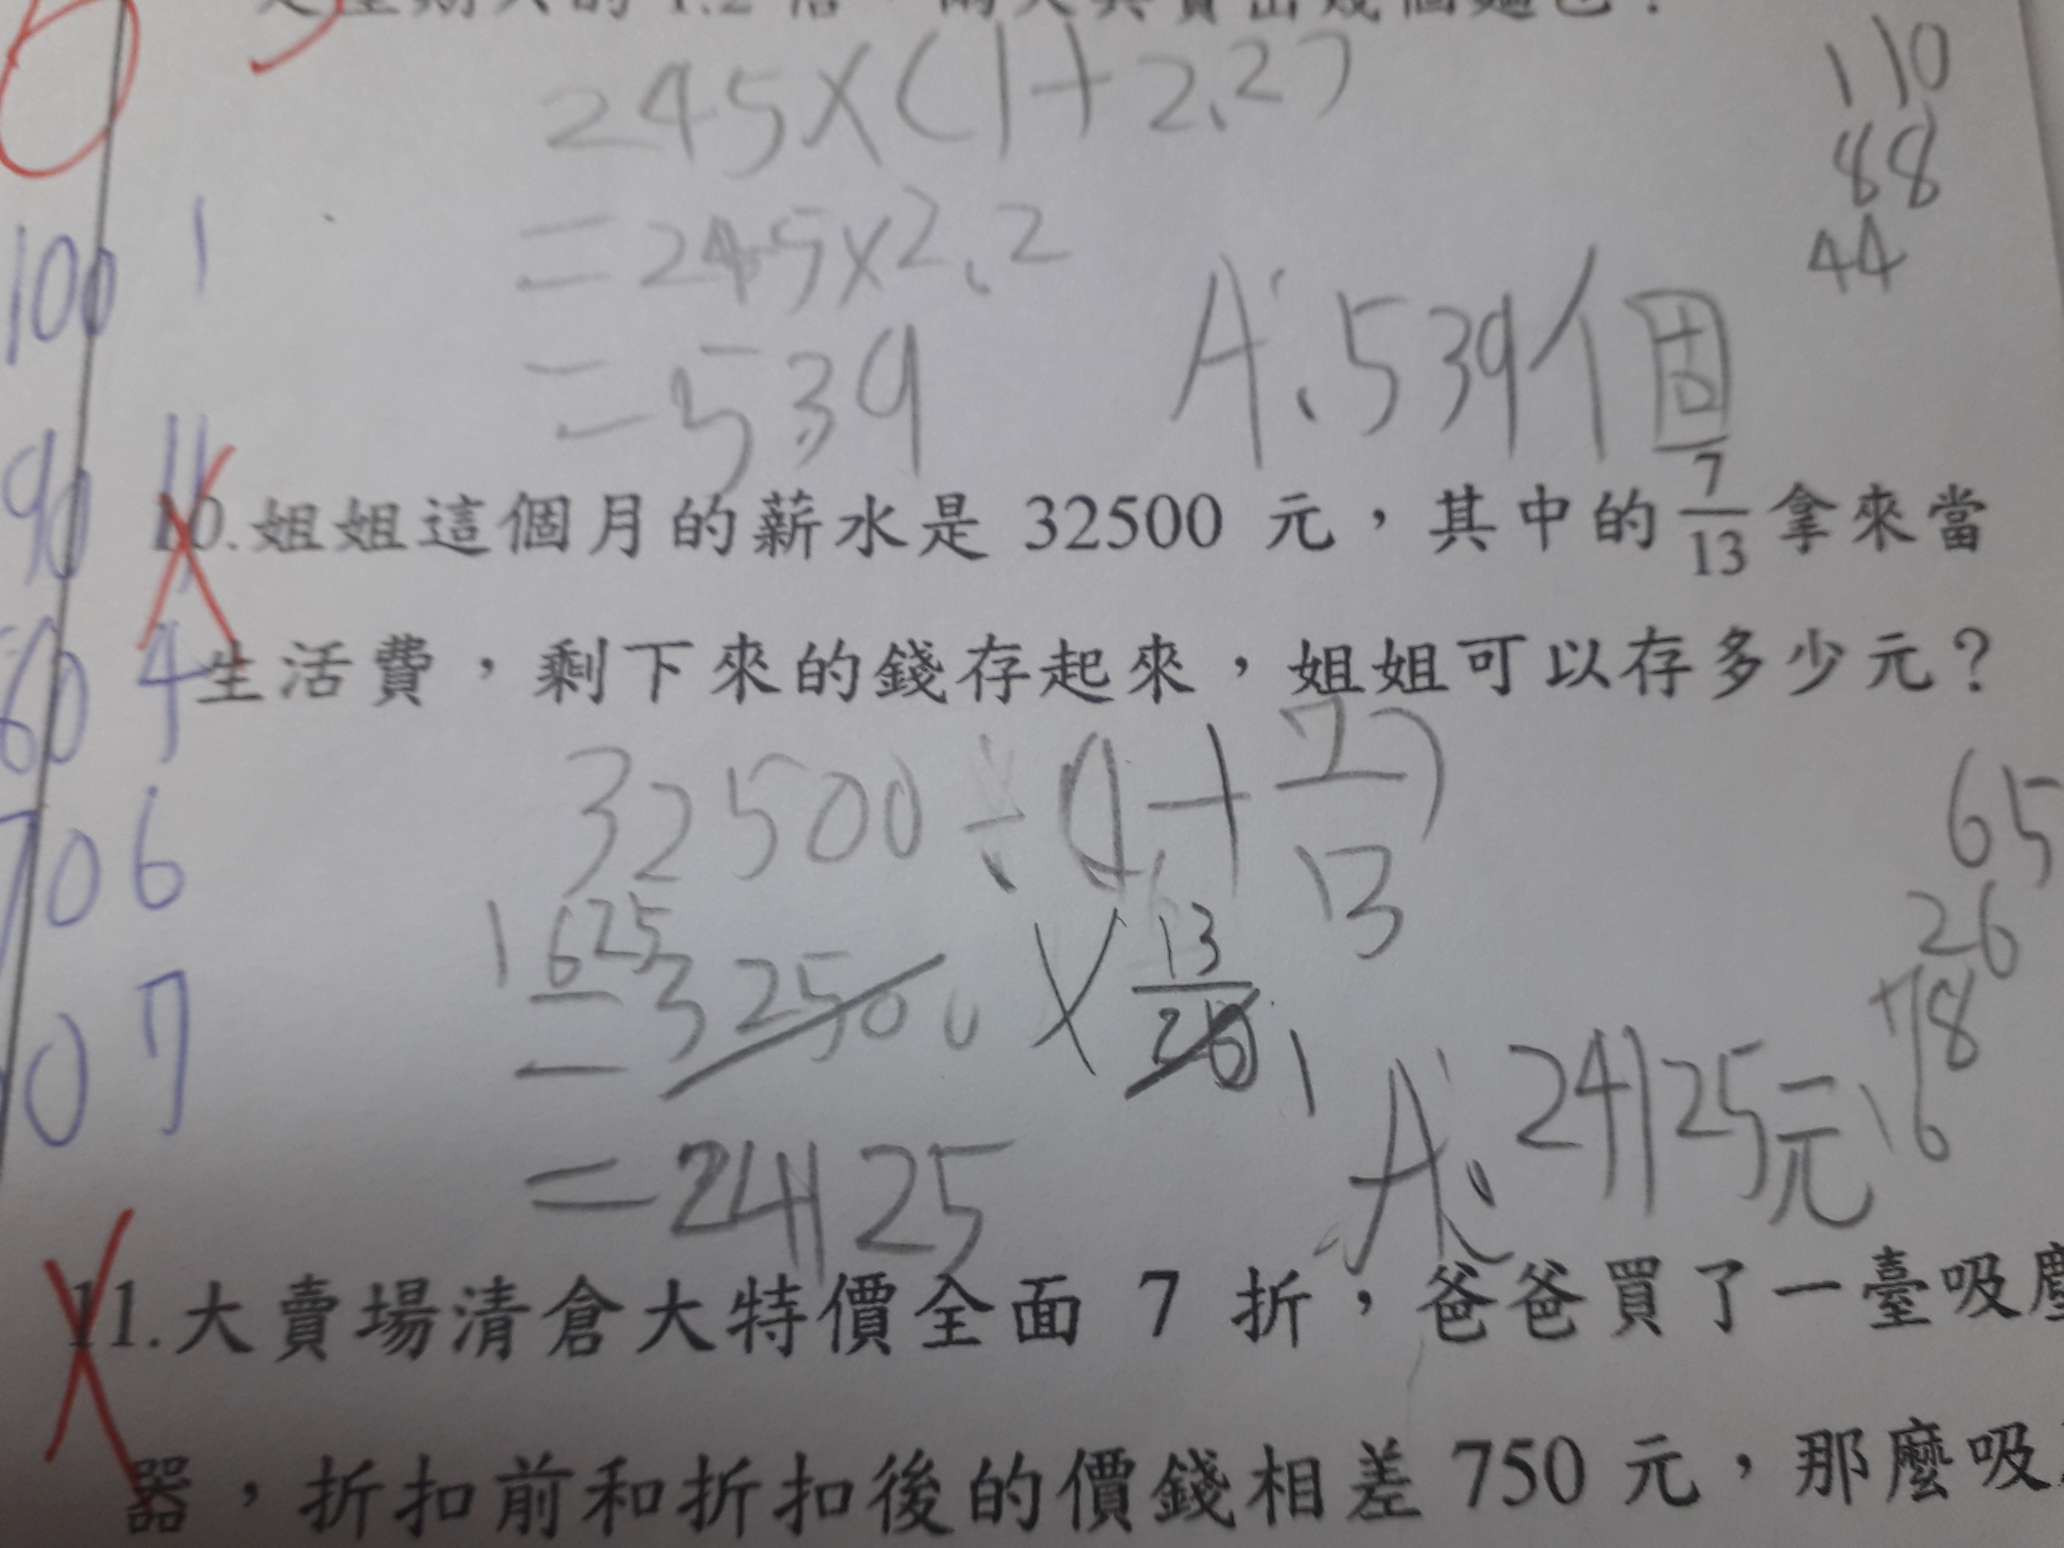 的 1.2 倍
245×(1+2.2)
110
88
44
=245×2.2
=539
A:539個
100 1
90 11
60 4
70 6
0 7
10.姐姐這個月的薪水是 32500 元，其中的 7/13 拿來當
生活費，剩下來的錢存起來，姐姐可以存多少元？
32500÷(1+7/13)
65
26
78
16
1625
=32500×13/20 1
=24125
A:24125元
11.大賣場清倉大特價全面 7 折，爸爸買了一臺吸塵
器，折扣前和折扣後的價錢相差 750 元，那麼吸